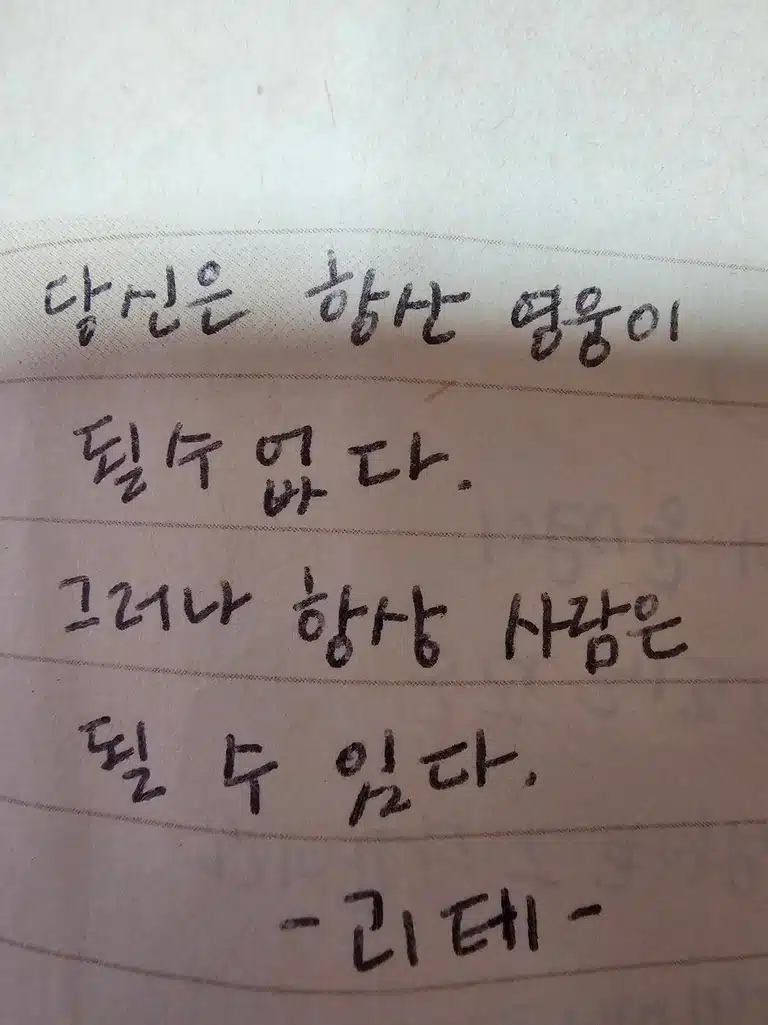 당신은 항산 영웅이
될수 없다.
그러나 항상 사람은
될 수 있다.
- 괴테 -